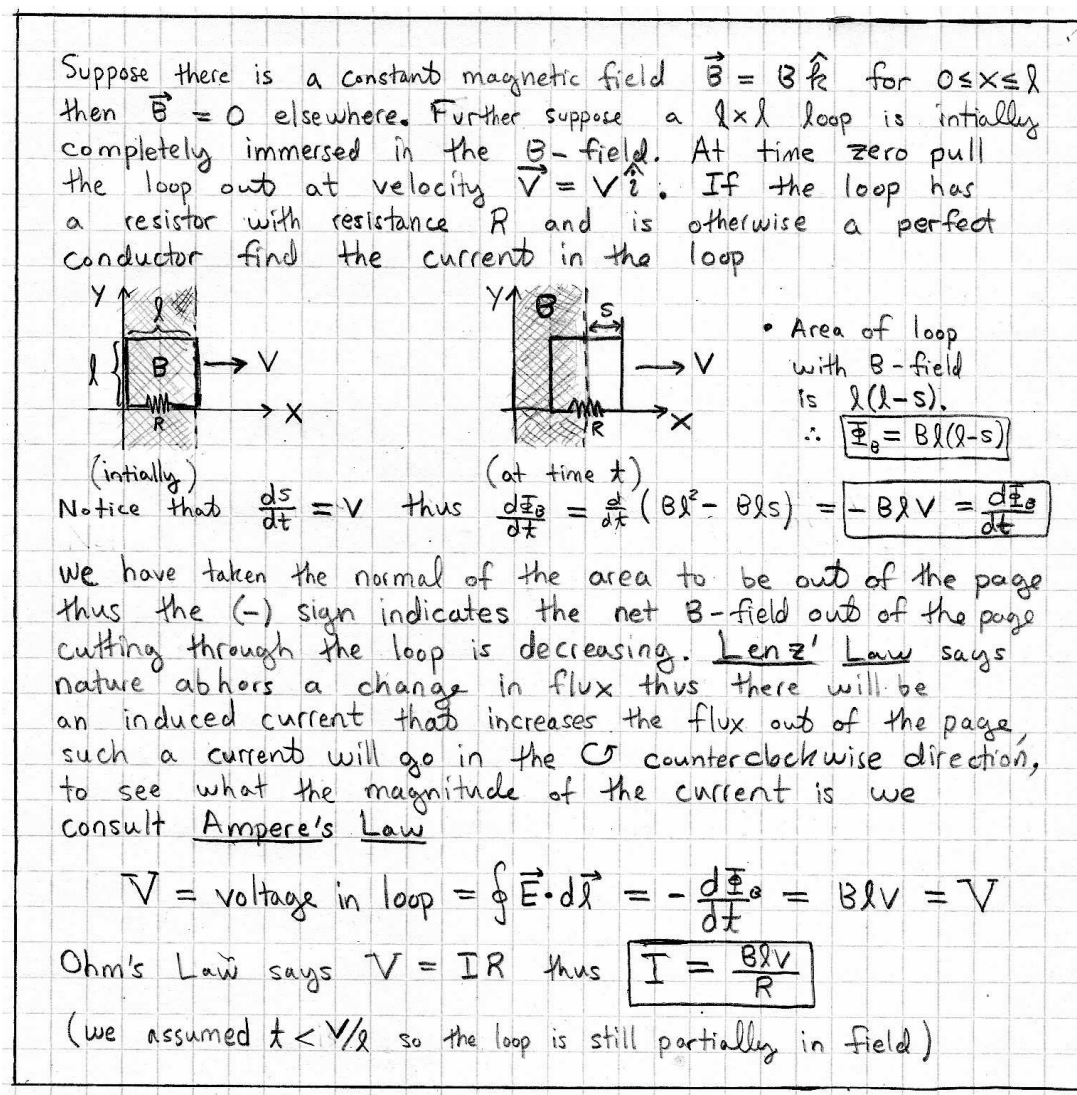 Suppose there is a constant magnetic field B⃗ = B k̂ for 0≤x≤l
then B⃗ = 0 elsewhere. Further suppose a l×l loop is intially
completely immersed in the B-field. At time zero pull
the loop out at velocity V⃗ = V î. If the loop has
a resistor with resistance R and is otherwise a perfect
conductor find the current in the loop
Y
l
l
B
V
R
X
(intially)
Y
B
S
V
R
X
(at time t)
• Area of loop
with B-field
is l(l-s).
∴ Φ_B = Bl(l-s)
Notice that ds/dt = V thus dΦ_B/dt = d/dt (Bl² - Bls) = -BlV = dΦ_B/dt
we have taken the normal of the area to be out of the page
thus the (-) sign indicates the net B-field out of the page
cutting through the loop is decreasing. Lenz' Law says
nature abhors a change in flux thus there will be
an induced current that increases the flux out of the page,
such a current will go in the ↺ counterclockwise direction,
to see what the magnitude of the current is we
consult Ampere's Law
V = voltage in loop = ∮ E⃗·dl⃗ = -dΦ_B/dt = BlV = V
Ohm's Law says V = IR thus I = BlV/R
(we assumed t < V/l so the loop is still partially in field)